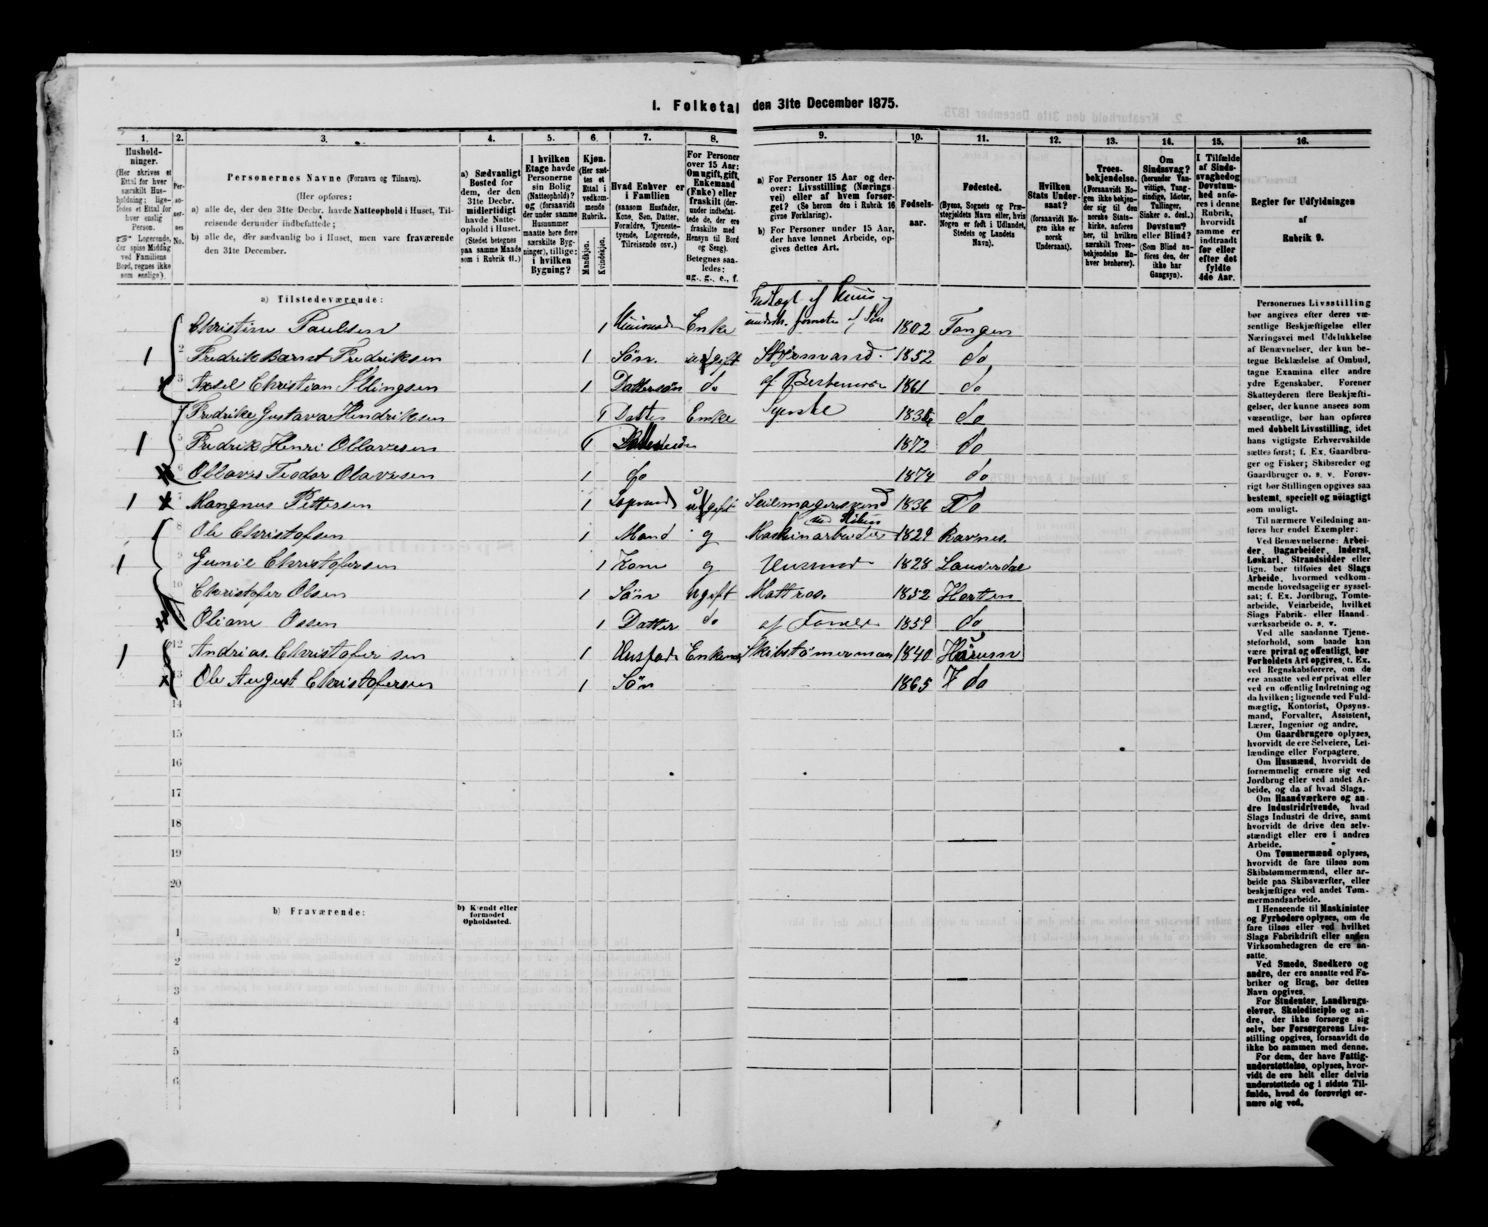 1. Folketal den 31te December 1875.
1. 2. 3. 4. 5. 6. 7. 8. 9. 10. 11. 12. 13. 14. 15. 16.
Husholdninger.
(Her skrives et Ettal for hver særskilt Husholdning; ligeledes et Ettal for hver enslig Person.
Logerende, der spise Middag ved Familiens Bord, regnes ikke som enslige).
Personernes No.
Personernes Navne (Fornavn og Tilnavn).
(Her opføres:
a) alle de, der den 31te Decbr. havde Natteophold i Huset, Tilreisende derunder indbefattede;
b) alle de, der sædvanlig bo i Huset, men vare fraværende den 31te December.
a) Sædvanligt Bosted for dem, der den 31te Decbr. midlertidigt havde Natteophold i Huset.
(Stedet betegnes paa samme Maade som i Rubrik 11.)
I hvilken Etage havde Personerne sin Bolig (Natteophold)? og (forsaavidt der under samme Husnummer maatte høre flere særskilte Bygninger), tillige: i hvilken Bygning?
Kjøn.
(Her sættes et Ettal i vedkommende Rubrik.
Mandkjøn. Kvindekjøn.
Hvad Enhver er i Familien
(saasom Husfader, Kone, Søn, Datter, Forældre, Tjenestetyende, Logerende, Tilreisende osv.)
For Personer over 15 Aar: Om ugift, gift, Enkemand (Enke) eller fraskilt (derunder indbefattede de, der ere fraskilte med Hensyn til Bord og Seng).
Betegnes saaledes: ug., g., e., f.
a) For Personer 15 Aar og derover: Livsstilling (Næringsvei) eller af hvem forsørget? (Se herom den i Rubrik 16 givne Forklaring).
b) For Personer under 15 Aar, der have lønnet Arbeide, opgives dettes Art.
Fødselsaar.
Fødested.
(Byens, Sognets og Præstegjeldets Navn eller, hvis Nogen er født i Udlandet, Stedets og Landets Navn).
Hvilken Stats Undersaat?
(forsaavidt Nogen ikke er norsk Undersaat).
Troesbekjendelse.
(Forsaavidt Nogen ikke bekjender sig til den norske Statskirke, anføres her, til hvilken særskilt Troesbekjendelse Enhver henhører).
Om Sindssvag? (herunder Vanvittige, Tungsindige, Idioter, Tullinger, Sinker o. desl.) Døvstum? eller Blind?
(Som Blind anføres den, der ikke har Gangsyn).
I Tilfælde af Sindssvaghed og Døvstumhed anføres i denne Rubrik, hvorvidt samme er indtraadt før eller efter det fyldte 4de Aar.
Regler for Udfyldningen af Rubrik 9.
a) Tilstedeværende:
Christine Paulsen 1 Enke 1802 Tangen
1 2 Fredrik Barnst Fredriksen 1 Søn ugift Styrmand 1852 do
3 Axel Christian Ellingsen 1 Dattersøn do af Bestemor 1861 do
Fredrike Gustava Hendriksen 1 Datter Enke Syerske do
1 5 Fredrik Henri Ollavesen 1 1872 do
6 Ollaves Teodor Olavesen 1 do 1874 do
1 7 Mangnus Pettersen 1 Logerende ugift 1836 Do
8 Ole Christofsen 1 Mand g Maskinarbeider 1829 Ravnes
1 Gunil Christofersen 1 Kone g 1828 Lauverdal
10 Christofer Olsen 1 Søn ugift Matros 1852 Horten
Oliane Ossen 1 Datter do 1859 do
1 12 Andrias Christofersen 1 Husfader Enkemand Skibstømerman 1840
Ole August Christofersen 1 Søn 1865 do
14
15
16
17
18
19
20
b) Fraværende: b) Kjendt eller formodet Opholdssted.
1
2
3
4
5
6
Personernes Livsstilling bør angives efter deres væsentlige Beskjæftigelse eller Næringsvei med Udelukkelse af Benævnelser, der kun betegne Beklædelse af Ombud, tagne Examina eller andre ydre Egenskaber. Forener Skatteyderen flere Beskjæftigelser, der kunne ansees som væsentlige, bør han opføres med dobbelt Livsstilling, idet hans vigtigste Erhvervskilde sættes først; f. Ex. Gaardbruger og Fisker; Skibsreder og Gaardbruger o. s. v. Forøvrigt bør Stillingen opgives saa bestemt, specielt og nøiagtigt som muligt.
Til nærmere Veiledning anføres her endel Exempler:
Ved Benævnelserne: Arbeider, Dagarbeider, Inderst, Løskarl, Strandsidder eller lign. bør tilføies det Slags Arbeide, hvormed vedkommende hovedsagelig er sysselsat; f. Ex. Jordbrug, Tomtearbeide, Veiarbeide, hvilket Slags Fabrik- eller Haandværksarbeide o. s. v.
Ved alle saadanne Tjenesteforhold, som baade kan være privat og offentligt, bør Forholdets Art opgives, t. Ex. ved Regnskabsførere, om de ere ansatte ved en privat eller ved en offentlig Indretning og da hvilken; lignende ved Fuldmægtig, Kontorist, Opsynsmand, Forvalter, Assistent, Lærer, Ingeniør og andre.
Om Gaardbrugere oplyses, hvorvidt de ere Selveiere, Leilændinge eller Forpagtere.
Om Husmænd, hvorvidt de fornemmelig ernære sig ved Jordbrug eller ved andet Arbeide, og da af hvad Slags.
Om Haandværkere og andre Industridrivende, hvad Slags Industri de drive, samt hvorvidt de drive den selvstændigt eller ere i andres Arbeide.
Om Tømmermænd oplyses, hvorvidt de fare tilsøs som Skibstømmermænd, eller arbeide paa Skibsværfter, eller beskjæftiges ved andet Tømmermandsarbeide.
I Henseende til Maskinister og Fyrbødere oplyses, om de fare tilsøs eller ved hvilket Slags Fabrikdrift eller anden Virksomhedsgren de ere ansatte.
Ved Smede, Snedkere og andre, der ere ansatte ved Fabriker og Brug, bør dettes Navn opgives.
For Studenter, Landbrugselever, Skoledisciple og andre, der ikke forsørge sig selv, bør Forsørgerens Livsstilling opgives, forsaavidt de ikke bo sammen med denne.
For dem, der have Fattigunderstøttelse, oplyses, hvorvidt de ere helt eller delvis understøttede og i sidste Tilfælde, hvad de forøvrigt ernære sig ved.